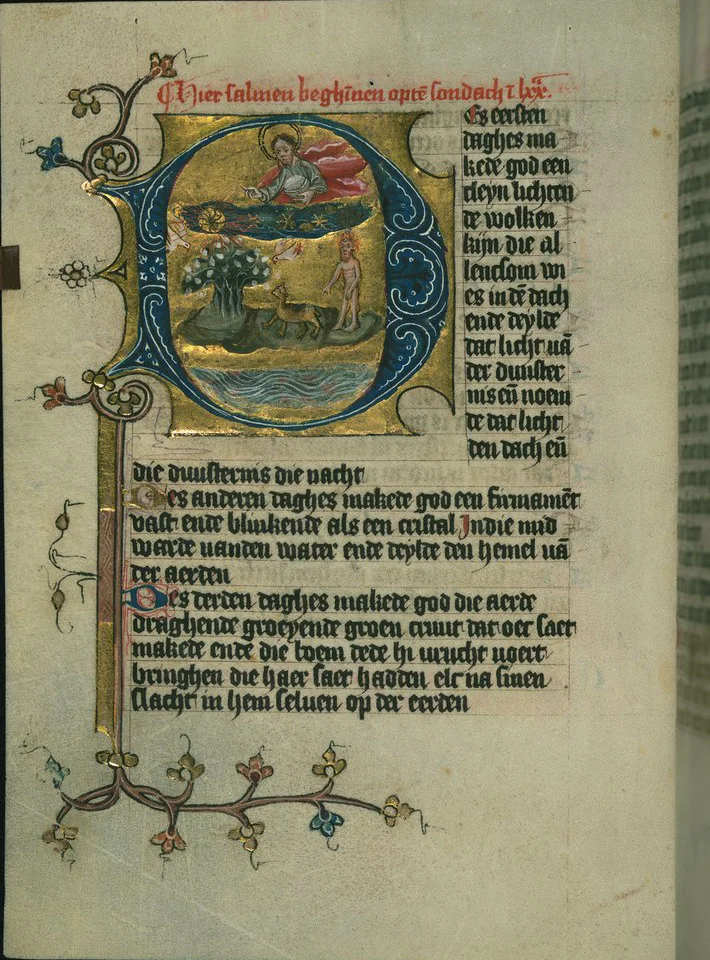 Hier salmen beghīnen optē sondach ī lxx.
Es eersten
daghes ma
kede god een
cleyn lichten
de wolken
kijn die al
lencsom wi
es in dē dach
ende deylde
dat licht uā
der duuster
nis eñ noem
de dat licht
den dach eñ
die duusternis die nacht
Des anderen daghes makede god een firmamēt
vast ende blinkende als een cristal Indie mid
warde uanden water ende deylde den hemel uā
der aerden
Des derden daghes makede god die aerde
draghende groeyende groen cruut dat oer saet
makede ende die boem dede hi urucht uoert
bringhen die haer saet hadden elc na sinen
slacht in hem seluen op der eerden